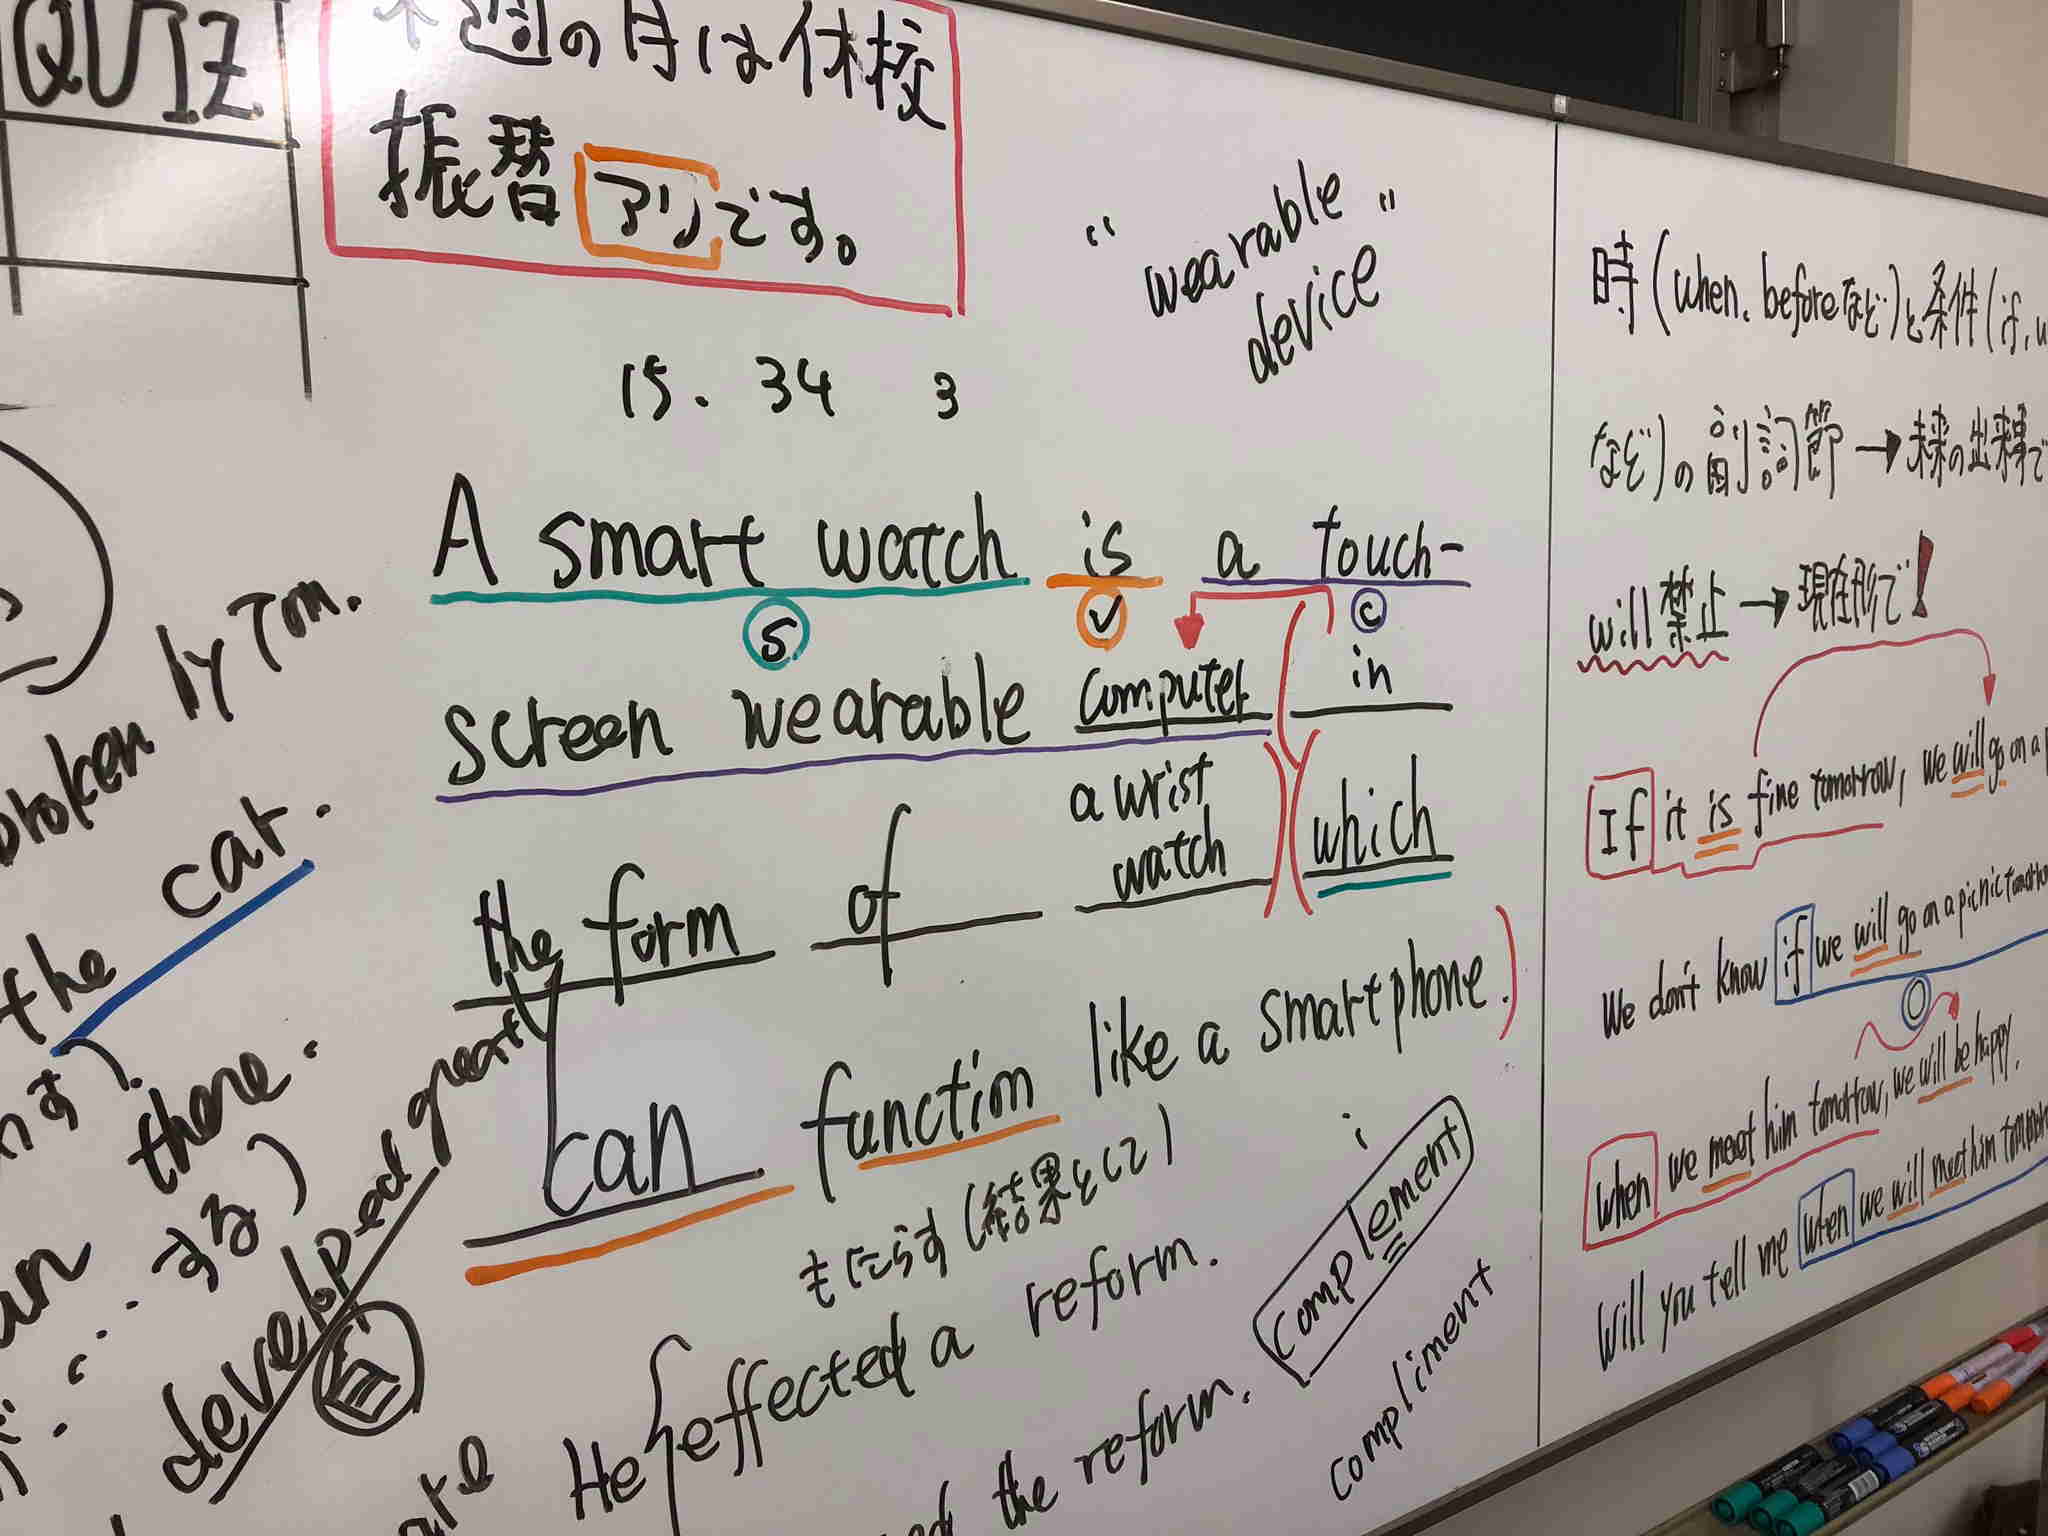 QUIZ
週の月は休校
振替アリです。
"wearable
device"
15. 34 3
A smart watch is a touch-
S V C
screen wearable computer in
the form of a wrist watch which
can function like a smartphone.
もたらす(結果として)
He effected a reform.
the reform.
i
complement
compliment
broken by Tom.
the car.
there.
する)
developed greatly
自
時(when. beforeなど)と条件(if, u
など)の副詞節→未来の出来事で
will禁止→現在形で!
If it is fine tomorrow, we will go on a p
We don't know if we will go on a picnic tomorrow
When we meet him tomorrow, we will be happy.
Will you tell me when we will meet him tomorrow